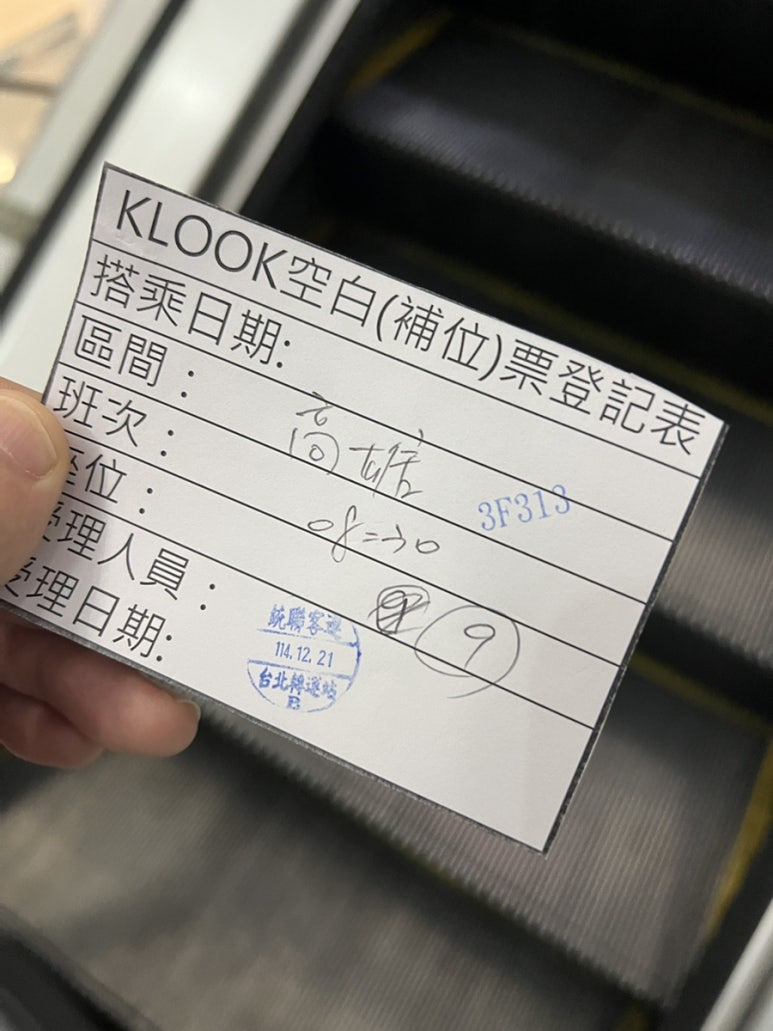 KLOOK空白(補位)票登記表
搭乘日期:
區間: 高雄
3F313
班次: 08=30
座位: 9
受理人員:
受理日期:
統聯客運
114.12.21
台北轉運站
B